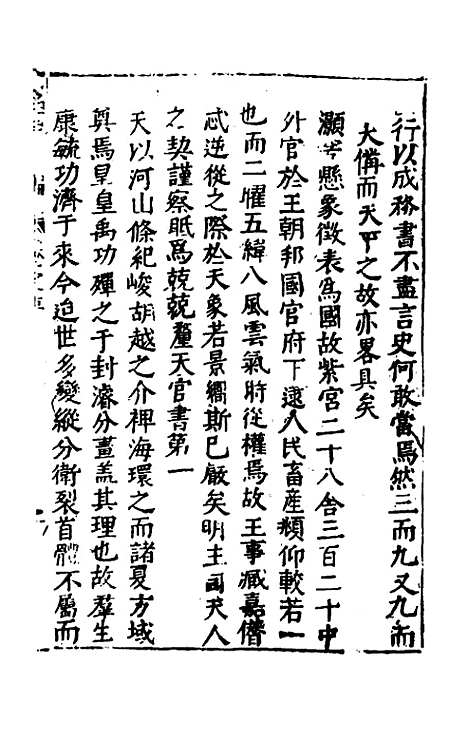 行以成務書不盡言史何敢當焉然三而九又九而
大備而天下之故亦畧具矣
灝兮懸象徵表為國故紫宮二十八舍三百二十中
外官於王朝邦國官府下逮人民畜産頫仰較若一
也而二燿五緯八風雲氣時從權焉故王事臧嘉僭
忒逆從之際於天象若景嚮斯已嚴矣明主司天人
之契謹察眂焉兢兢釐天官書第一
天以河山條紀峻胡越之介裨海環之而諸夏方域
奠焉皇皇禹功殫之于封濬分畺盖其理也故羣生
康毓功濟于來今迨世多變縱分衛裂首體不屬而